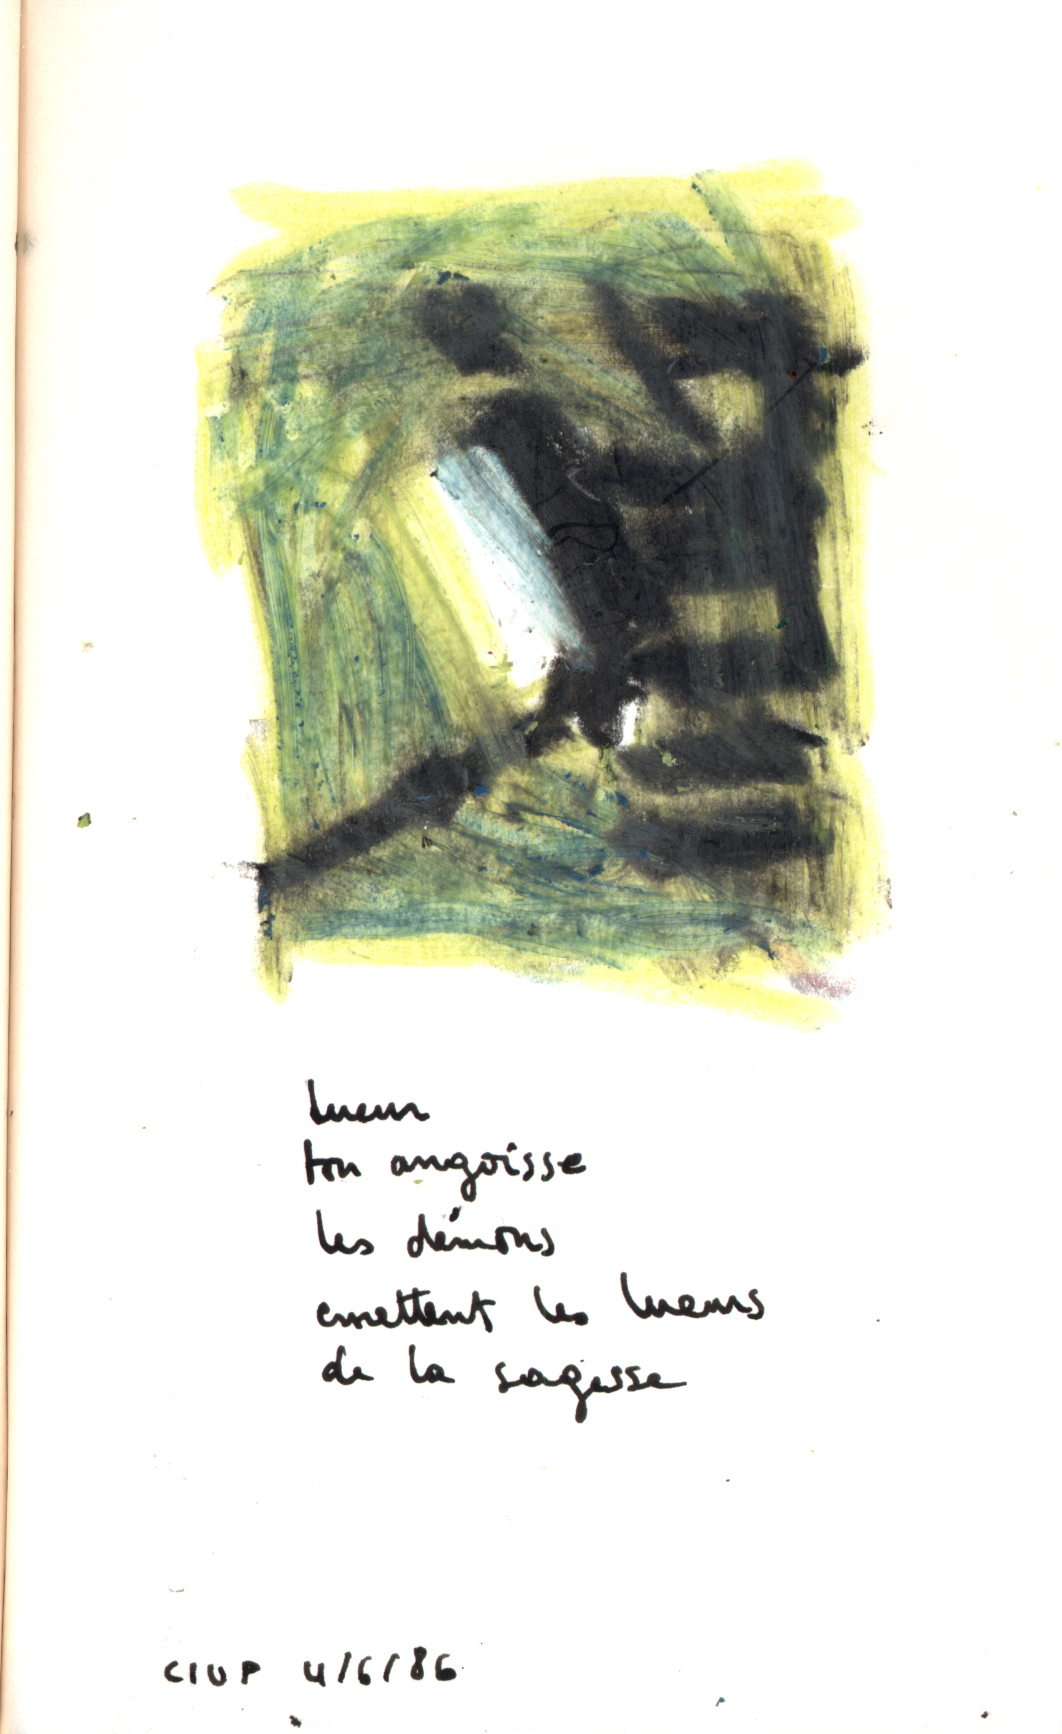 lueur
ton angoisse
les démons
emettent les lueurs
de la sagesse
CIUP 4/6/86